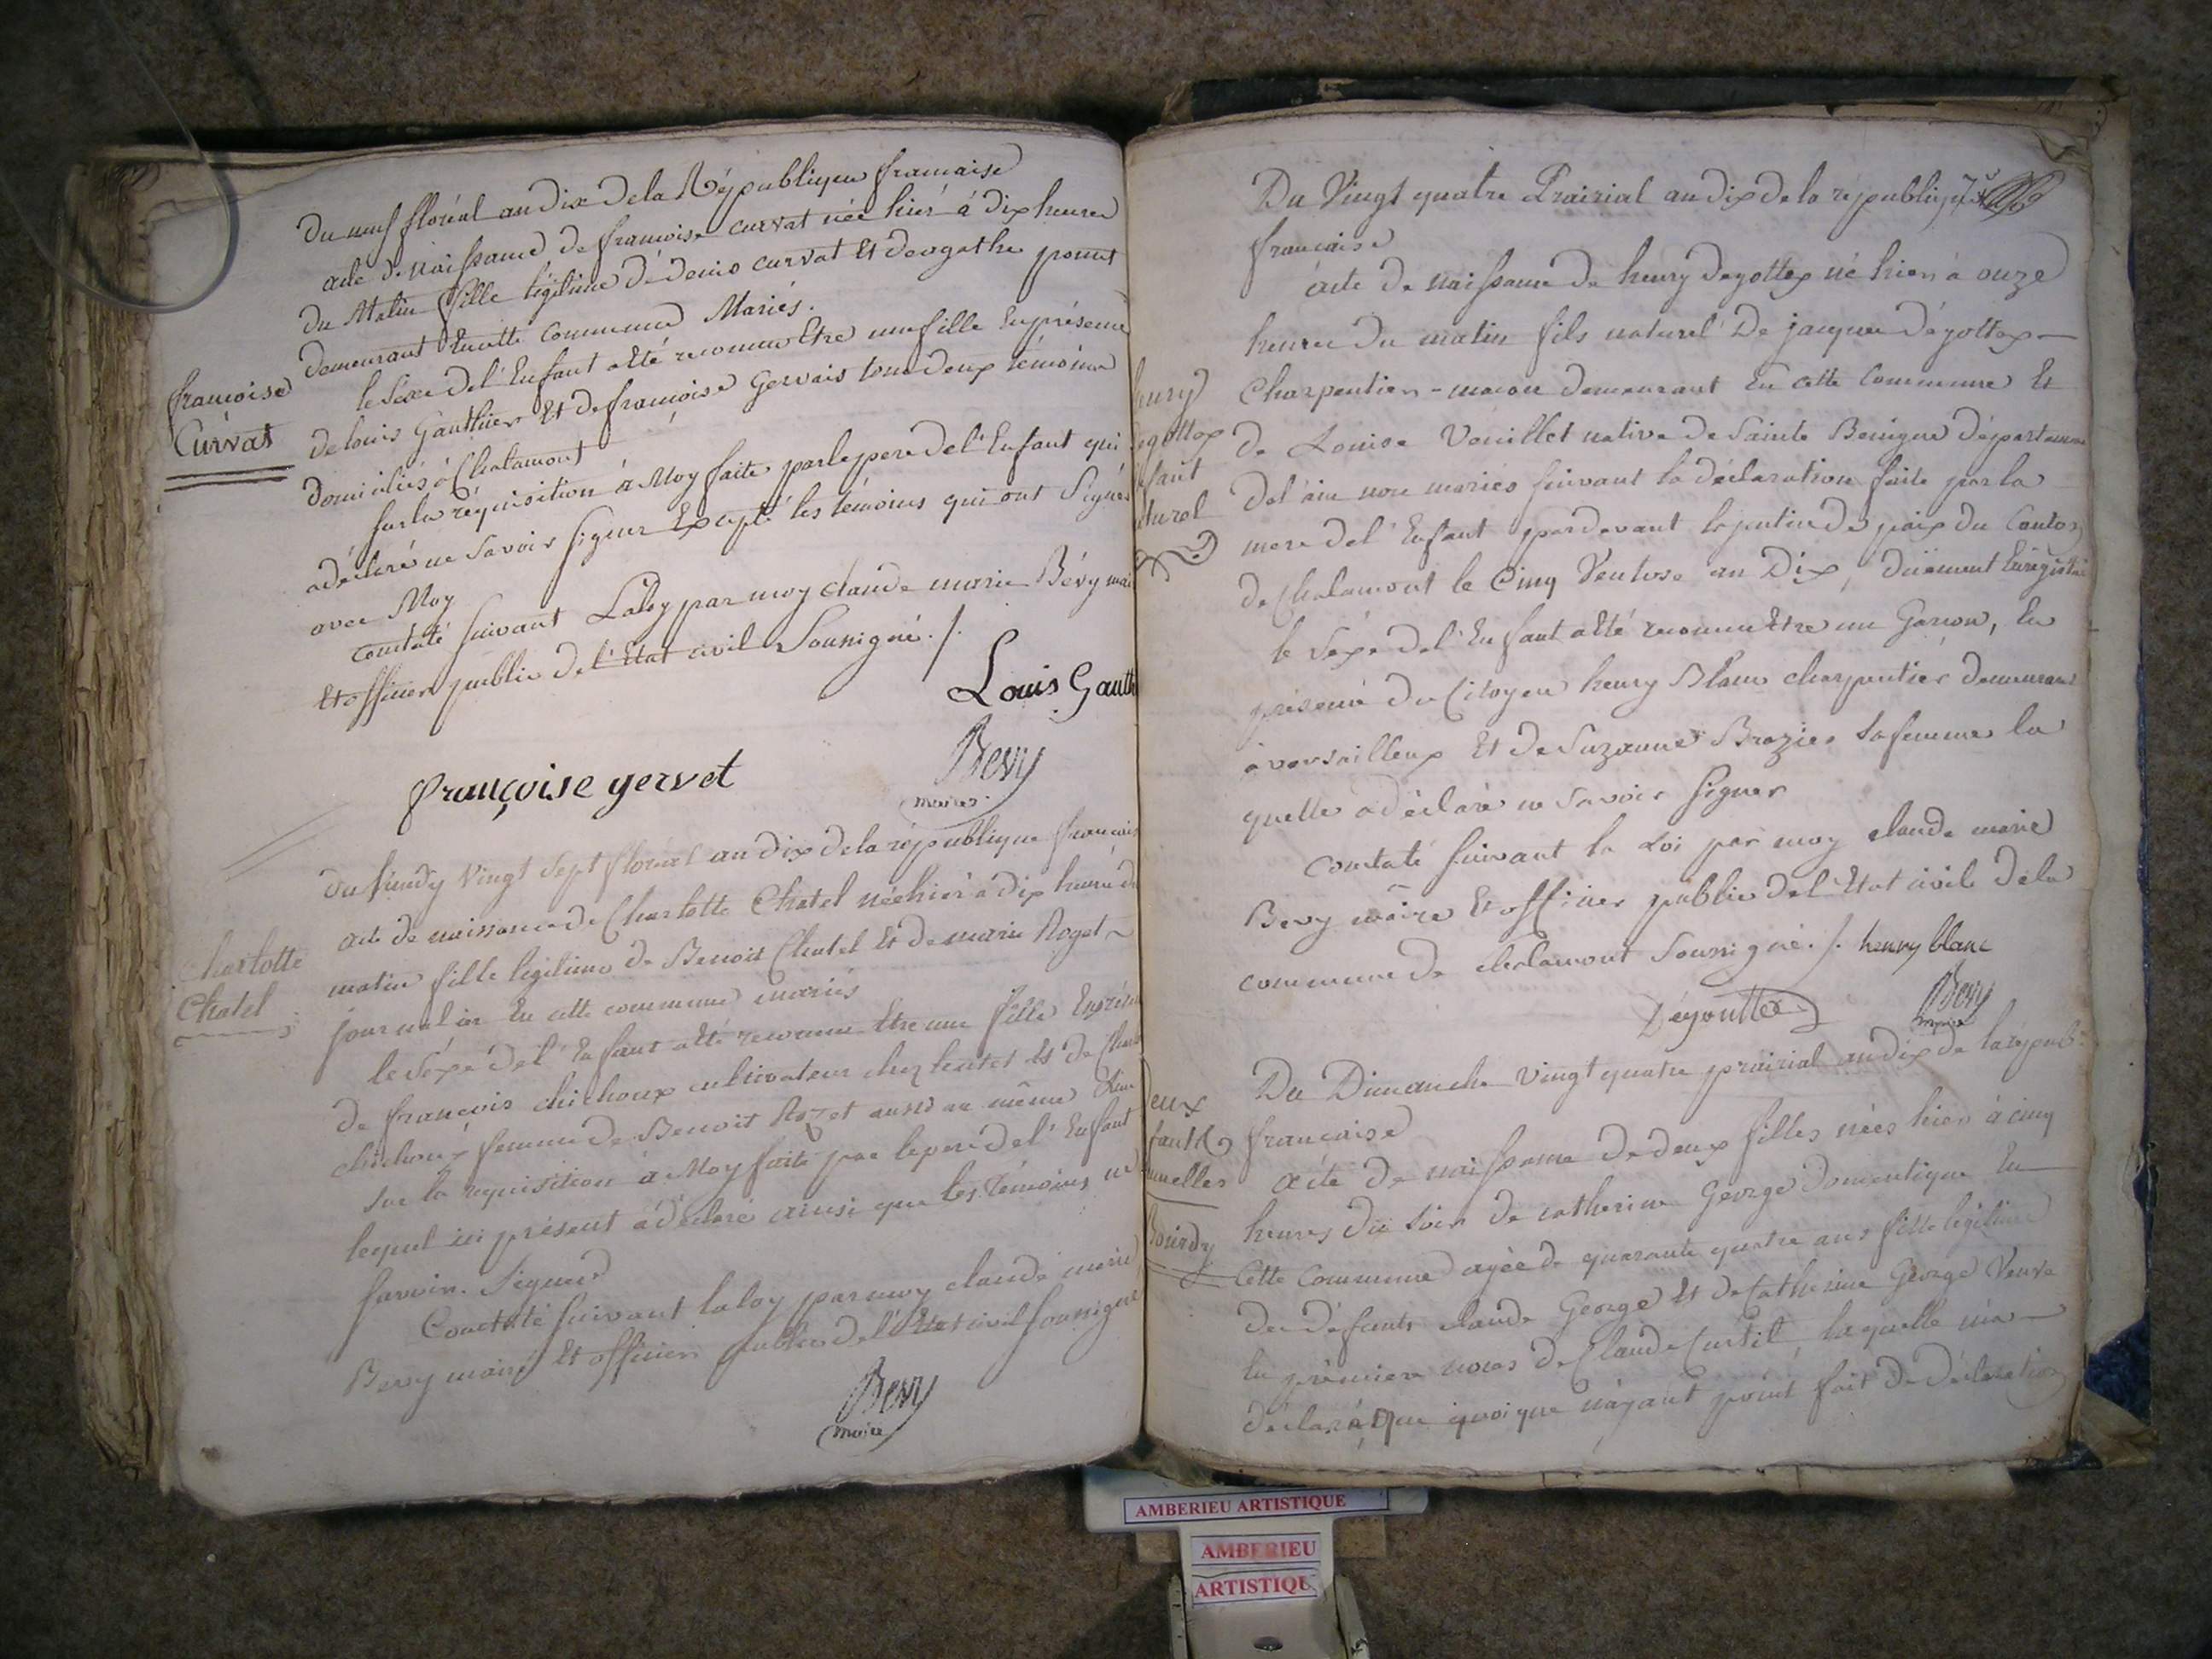 du neuf floréal an dix de la République francaise
acte de naissance de francoise curvat née hier à dix heures
du Matin fille légitime de denis curvat Et deagathe
demeurant En cette Commune Mariés.
le Sexe del'Enfant a Eté reconnu Etre une fille En présence
francoise
Curvat
de louis Gauthier Et de françoise Gervais tous deux témoins
domiciliés à Chalamont
sur la réquisition à Moy faite par le pere del'Enfant qui
a déclaré ne Savoir signer Excepté les témoins qui ont Signés
avec Moy
constaté suivant Laloy par moy claude marie Bévy
Et officier public del'Etat civil Soussigné ./.
Louis Gauth
françoise gervet
Bevy
maire
du lundy Vingt Sept floreal an dix dela république
acte de naissance de Charlotte Chatel née hier à dix heures du
Charlotte
Chatel
matin fille légitime de Benoit Chatel Et de marie Roget
journalier En cette commune mariés
le Sexe del'Enfant a Eté reconnu Etre une fille
de francois chichoux cultivateur chez Et de
chichoux femme de Benoit Rozet aussi au même
Sur la requisition à Moy faite par le pere del'Enfant
lequel ici présent a déclaré ainsi que les témoins ne
savoir Signer
Constaté suivant la loy par moy claude marie
Bevy maire Et officier public del'Etat civil soussigné
Bevy
maire
Du Vingt quatre Prairial an dix de la république
francaise
acte de naissance de henry degottex né hier à onze
heures du matin fils naturel De jacque dégottex
henry
degottex
Enfant
naturel
Charpentier - macon demeurant En cette Commune Et
de Louise Vouillet native de Sainte Benigne département
del'ain non mariés suivant la déclaration faite par la
mere del'Enfant pardevant le de paix du Canton
de Chalamont le Cinq Ventose an Dix, düement Enregistré
le Sexe del'Enfant a Eté reconnu Etre un Garcon, En
présence du Citoyen henry Blanc charpentier demeurant
à versailleux Et de Suzanne Brazier Safemme la
quelle a déclaré ne Savoir Signer
Constaté suivant la Loi par moy claude marie
Bevy maire Et officier public del'Etat civile dela
commune de chalamont Soussigné ./. henry blanc
Dégouttex
Bevy
maire
Du Dimanche Vingt quatre prairial an dix de la
Deux
francaise
acte de naissance de deux filles nées hier à cinq
jumelles
Bourdy
heures du Soir de catherine George Domentique En
Cette Commune agée de quarante quatre ans fille légitime
des défunts claude George Et de Catherine George Veuve
En premiere noces de Claude Curtil, laquelle m'a
déclaré que quoique n'ayant point fait de déclaration
AMBERIEU ARTISTIQUE
AMBERIEU
ARTISTIQUE